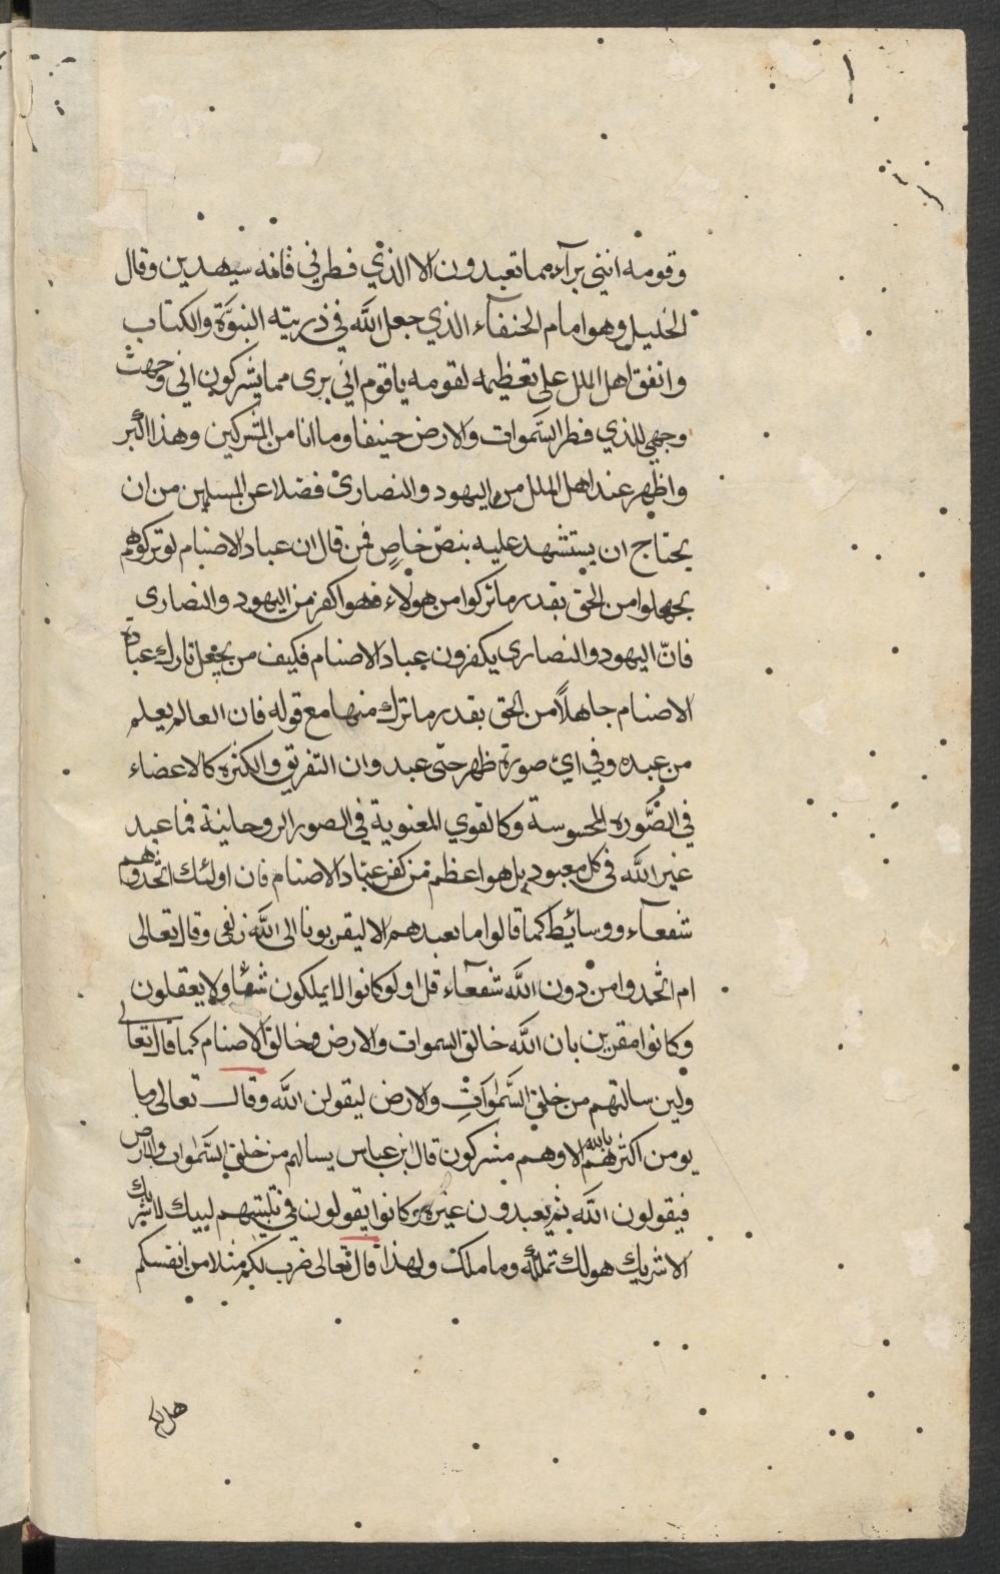 وقومه انني برآء مما تعبدون الا الذي فطرني فانه سيهدين وقال
الخليل وهو امام الحنفآء الذي جعل الله في ذريته النبوّة والكتاب
واتفق اهل الملل على تعظيمه لقومه ياقوم اني بري مما يشركون اني وجهت
وجهي للذي فطر السَّموات والارض حنيفا وما انا من المشركين وهذا اكبر
واظهر عند اهل الملل من اليهود والنصارى فضلا عن المسلمين من ان
يحتاج ان يستشهد عليه بنصّ خاصٍ فمن قال ان عباد الاصنام لو تركوهم
بجهلوا من الحق بقدر ما تركوا من هولاء فهو اكفر من اليهود والنصارى
فانّ اليهود والنصارى يكفرون عباد الاصنام فكيف من يجعل تارك عبادة
الاصنام جاهلاً من الحق بقدر ما ترك منها مع قوله فان العالم يعلم
من عبده وفي اي صورة ظهر حتى عبد وان التفريق والكثرة كالاعضاء
في الصُّوره المحسوسة وكالقوي المعنوية في الصور الروحانية فما عبد
غير الله في كل معبود بل هو اعظم من كفر عباد الاصنام فان اولئك اتخذوهم
شفعآء ووسائط كما قالوا ما نعبدهم الا ليقربونا الى الله زلفى وقال تعالى
ام اتخذوا من دون الله شفعآء قل اولو كانوا لا يملكون شئا ولا يعقلون
وكانوا مقرين بان الله خالق السموات والارض وخالق الاصنام كما قال تعالى
ولين سالتهم من خلق السَّمٰوَاتِ والارض ليقولن الله وقال تعالى وما
يومن اكثرهم بالله الا وهم مشركون قال ابن عباس يسالهم من خلق السَّموات والارض
فيقولون الله ثم يعبدون غيره وكانوا يقولون في تلبيتهم لبيك لا شريك لك
الا شريك هو لك تملكه وما ملك ولهذا قال تعالى ضرب لكم مثلا من انفسكم
هل لكم